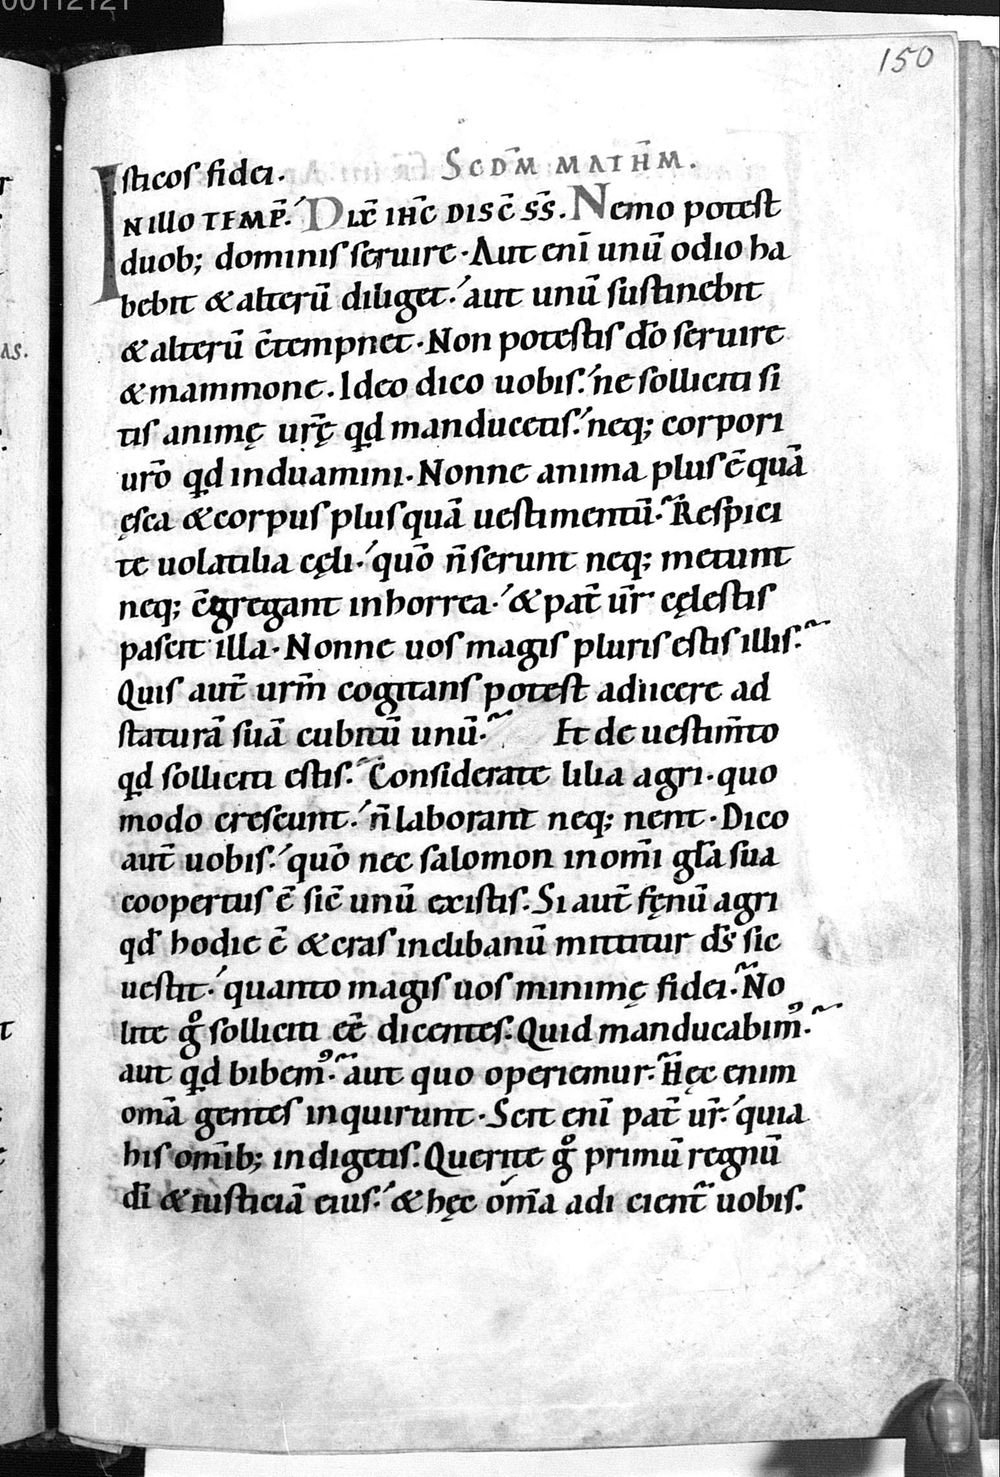 150
sticos fidei. SCDM̄ MATHM̄.
IN ILLO TEMP̄. Dix̄ IHC̄ DISC̄ SS̄. Nemo potest
duob; dominis seruire. Aut eni̅ unū odio ha
bebit & alterū diliget. aut unū sustinebit
& alterū c̄tempnet. Non potestis dō seruire
& mammone. Ideo dico uobis. ne solliciti si
tis animę urę̄ qd manducetis. neq; corpori
urō qd induamini. Nonne anima plus ē quā
ęsca & corpus plus quā uestimentū. Respici
te uolatilia cęli. quō n̄ serunt neq; metunt
neq; c̄gregant in horrea. & pat̄ ur̄ cęlestis
pascit illa. Nonne uos magis pluris estis illis.
Quis aut̄ urm̄ cogitans potest adiicere ad
staturā suā cubitū unū. Et de uestim̄to
qd solliciti estis. Considerate lilia agri. quo
modo crescunt. n̄ laborant neq; nent. Dico
aut̄ uobis. quō nec salomon in om̄i gl̄a sua
coopertus ē sic̄ unū existis. Si aut̄ fęnū agri
qd̄ hodie ē & cras in clibanū mittitur ds̄ sic
uestit. quanto magis uos minimę fidei. No
lite gͦ solliciti eē dicentes. Quid manducabimꝰ.
aut qd bibemꝰ. aut quo operiemur. Hęc enim
om̄a gentes inquirunt. Scit eni̅ pat̄ ur̄. quia
his om̄ib; indigetis. Querite gͦ primū regnū
di̅ & iusticiā eius. & hęc om̄a adi cient̄ uobis.
AS.